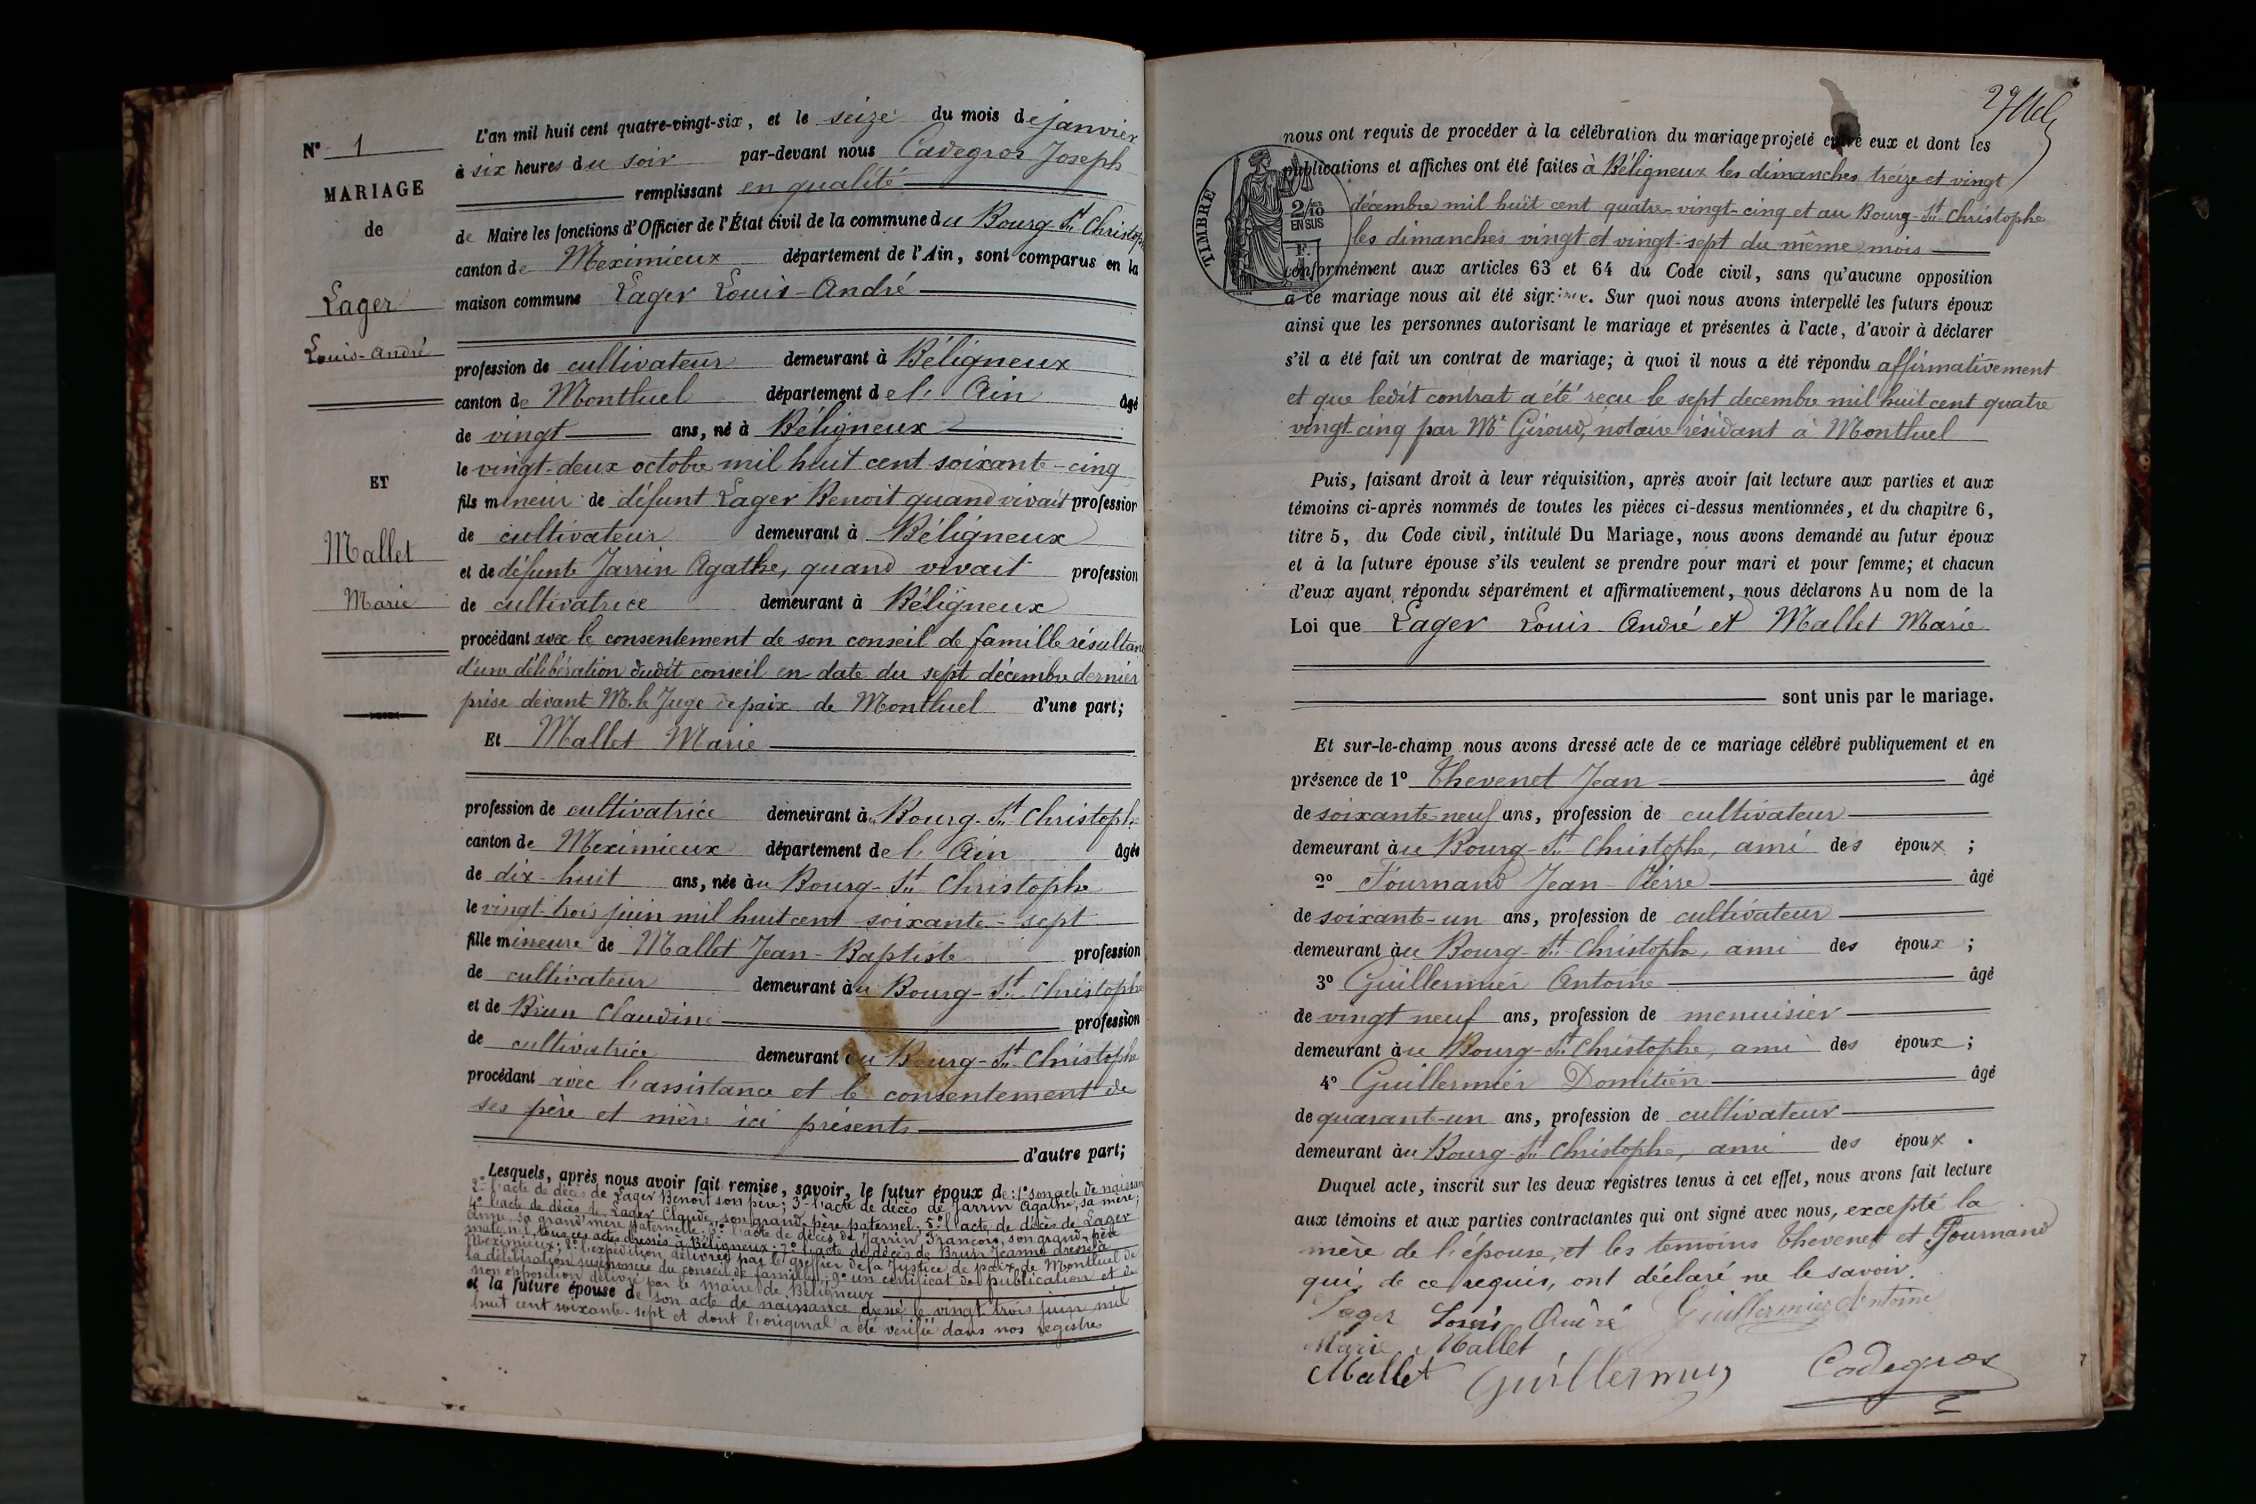 L'an mil huit cent quatre-vingt-six, et le seize du mois de janvier
N° 1
à six heures du soir par-devant nous Cadegros Joseph
MARIAGE
remplissant en qualité
de
de Maire les fonctions d'Officier de l'État civil de la commune du Bourg-St Christophe
canton de Meximieux département de l'Ain, sont comparus en la
Lager
maison commune Lager Louis-André
Louis-André
profession de cultivateur demeurant à Béligneux
canton de Montluel département de l'Ain âgé
de vingt ans, né à Béligneux
le vingt-deux octobre mil huit cent soixante-cinq
ET
fils mineur de défunt Lager Benoit quand vivait profession
de cultivateur demeurant à Béligneux
Mallet
et de défunte Jarrin Agathe, quand vivait profession
Marie
de cultivatrice demeurant à Béligneux
procédant avec le consentement de son conseil de famille résultant
d'une délibération dudit conseil en date du sept décembre dernier
prise devant M. le Juge de paix de Montluel d'une part;
Et Mallet Marie
profession de cultivatrice demeurant à Bourg-St Christophe
canton de Meximieux département de l'Ain âgée
de dix-huit ans, née au Bourg-St Christophe
le vingt-trois juin mil huit cent soixante-sept
fille mineure de Mallet Jean-Baptiste profession
de cultivateur demeurant au Bourg-St Christophe
et de Brun Claudine profession
de cultivatrice demeurant au Bourg-St Christophe
procédant avec l'assistance et le consentement de
ses père et mère ici présents
d'autre part;
Lesquels, après nous avoir fait remise, savoir, le futur époux de: 1° son acte de naissance
2° l'acte de décès de Lager Benoit son père; 3° l'acte de décès de Jarrin Agathe, sa mère;
4° l'acte de décès de Lager Claude, son grand-père paternel; 5° l'acte de décès de Lager
Anne sa grand'mère paternelle; l'acte de décès de Jarrin François, son grand-père
maternel, tous ces actes dressés à Béligneux; 7° l'acte de décès de Brun Jeanne dressé à
Meximieux; 8° l'expédition délivrée par le greffier de la Justice de paix de Montluel de
la délibération susénoncée du conseil de famille; 9° un certificat de publication et de
non opposition délivré par le maire de Béligneux
et la future épouse de son acte de naissance dressé le vingt-trois juin mil
huit cent soixante-sept et dont l'original a été vérifié dans nos registres
nous ont requis de procéder à la célébration du mariage projeté entre eux et dont les
publications et affiches ont été faites à Béligneux les dimanches treize et vingt
décembre mil huit cent quatre-vingt-cinq et au Bourg-St Christophe
les dimanches vingt et vingt-sept du même mois
TIMBRE
2/10
EN SUS
conformément aux articles 63 et 64 du Code civil, sans qu'aucune opposition
à ce mariage nous ait été signifiée. Sur quoi nous avons interpellé les futurs époux
ainsi que les personnes autorisant le mariage et présentes à l'acte, d'avoir à déclarer
s'il a été fait un contrat de mariage; à quoi il nous a été répondu affirmativement
et que ledit contrat a été reçu le sept decembre mil huit cent quatre
vingt-cinq par Me Giroud, notaire résidant à Montluel
Puis, faisant droit à leur réquisition, après avoir fait lecture aux parties et aux
témoins ci-après nommés de toutes les pièces ci-dessus mentionnées, et du chapitre 6,
titre 5, du Code civil, intitulé Du Mariage, nous avons demandé au futur époux
et à la future épouse s'ils veulent se prendre pour mari et pour femme; et chacun
d'eux ayant répondu séparément et affirmativement, nous déclarons Au nom de la
Loi que Lager Louis André et Mallet Marie
sont unis par le mariage.
Et sur-le-champ nous avons dressé acte de ce mariage célébré publiquement et en
présence de 1° Thevenet Jean âgé
de soixante neuf ans, profession de cultivateur
demeurant au Bourg-St Christophe, ami des époux ;
2° Fournand Jean-Pierre âgé
de soixante-un ans, profession de cultivateur
demeurant au Bourg-St Christophe, ami des époux ;
3° Guillermier Antoine âgé
de vingt neuf ans, profession de menuisier
demeurant au Bourg-St Christophe, ami des époux ;
4° Guillermier Domitien âgé
de quarant-un ans, profession de cultivateur
demeurant au Bourg-St Christophe, ami des époux .
Duquel acte, inscrit sur les deux registres tenus à cet effet, nous avons fait lecture
aux témoins et aux parties contractantes qui ont signé avec nous, excepté la
mère de l'épouse, et les temoins Thevenet et Fournand
qui, de ce requis, ont déclaré ne le savoir.
Lager Louis André Guillermier Antoine
Marie Mallet
Mallet Guillermier Cadegros